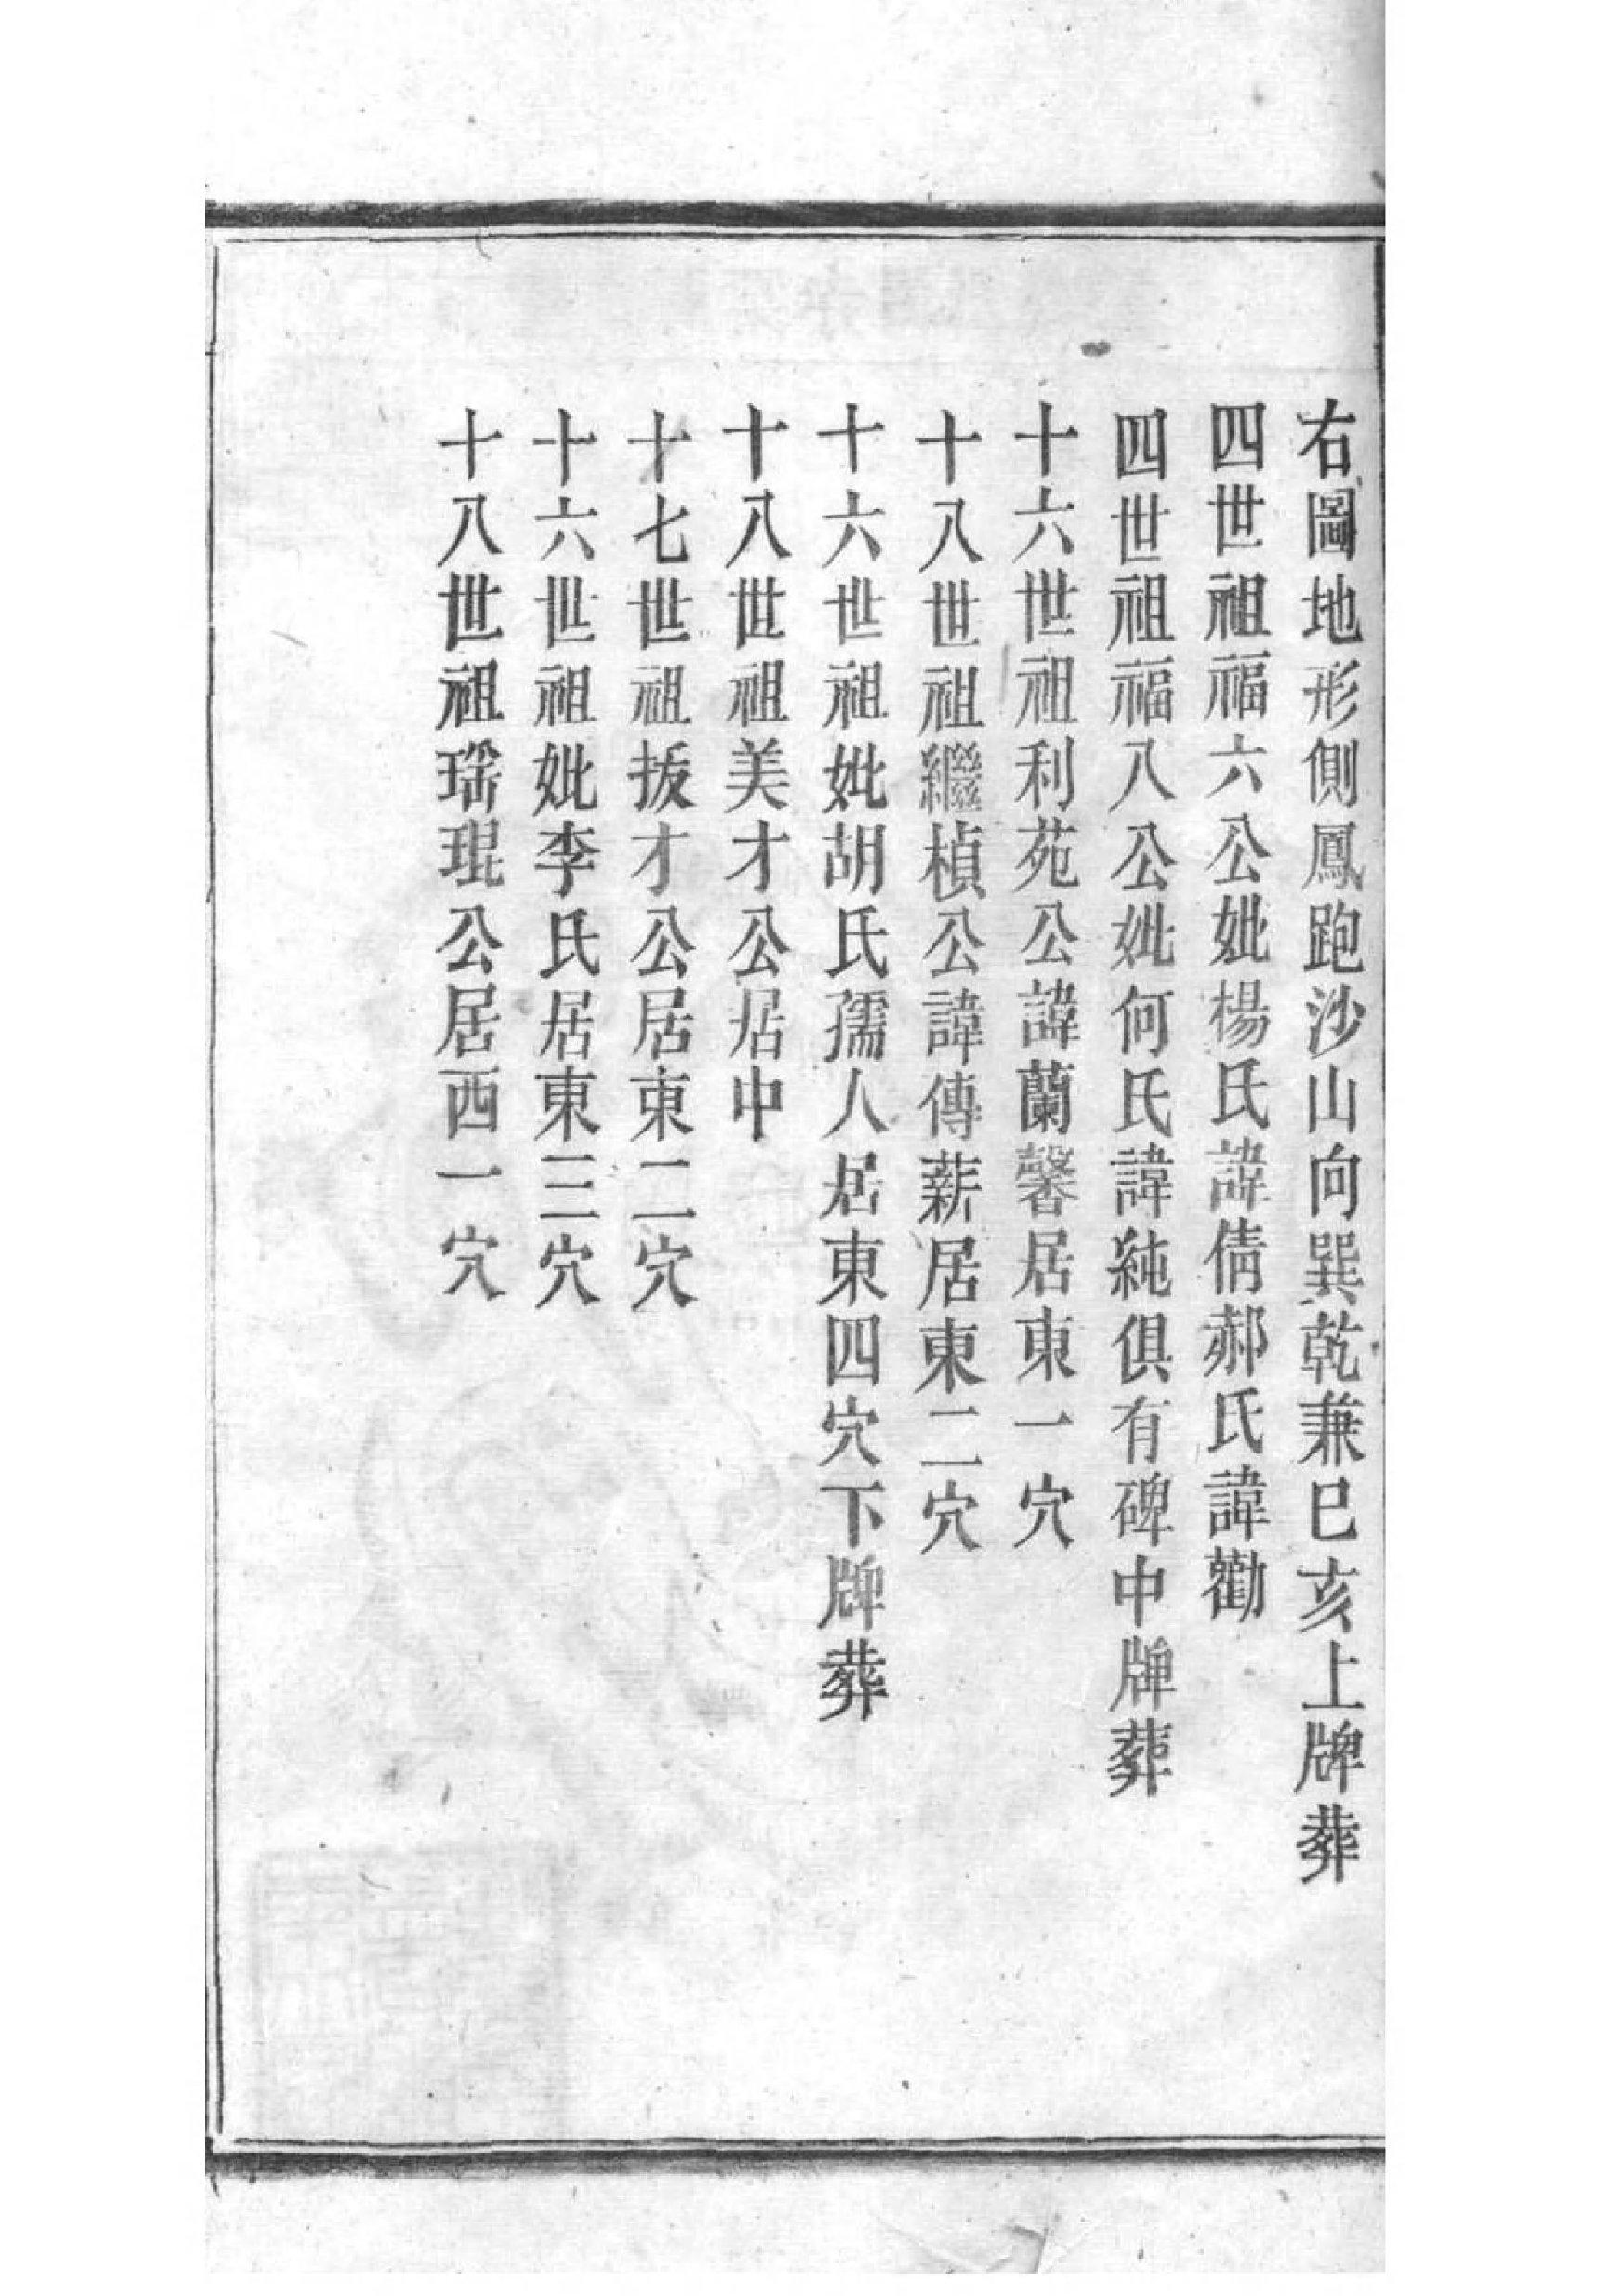 右圖地形側鳳跑沙山向巽乾兼巳亥上牌葬
四世祖福六公妣楊氏諱倩郝氏諱勸
四世祖福八公妣何氏諱純俱有碑中牌葬
十六世祖利苑公諱蘭馨居東一穴
十八世祖繼楨公諱傳薪居東二穴
十六世祖妣胡氏孺人居東四穴下牌葬
十八世祖美才公居中
十七世祖拔才公居東二穴
十六世祖妣李氏居東三穴
十八世祖瑤琨公居西一穴